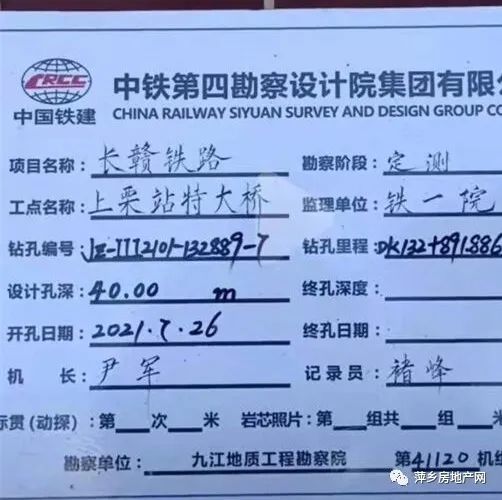 CRCC 中铁第四勘察设计院集团有限
中国铁建 CHINA RAILWAY SIYUAN SURVEY AND DESIGN GROUP CO
项目名称：长赣铁路 勘察阶段：定测
工点名称：上栗站特大桥 监理单位：铁一院
钻孔编号：JZ-III2101-132889-7 钻孔里程：DK132+891.886
设计孔深：40.00 m 终孔深度：
开孔日期：2021.7.26 终孔日期：
机 长：尹军 记录员：褚峰
标贯（动探）：第 次 米 岩芯照片：第 组共 组 米
勘察单位：九江地质工程勘察院 第41120机组
萍乡房地产网